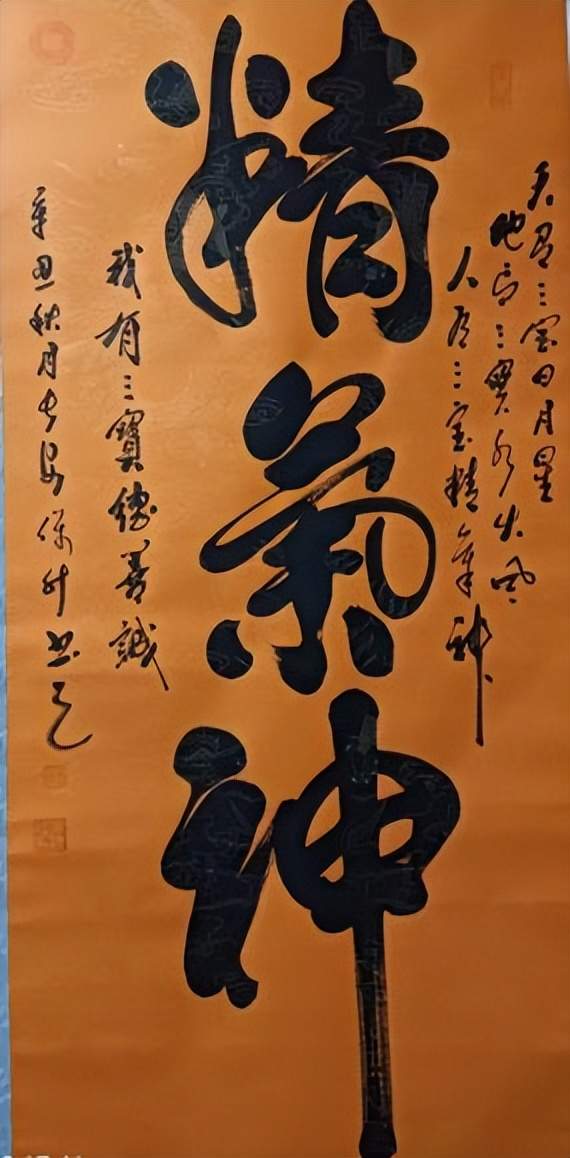 天有三宝日月星
地有三寶水火风
人有三宝精氣神
精氣神
我有三寶德善誠
辛丑秋月长安保升书